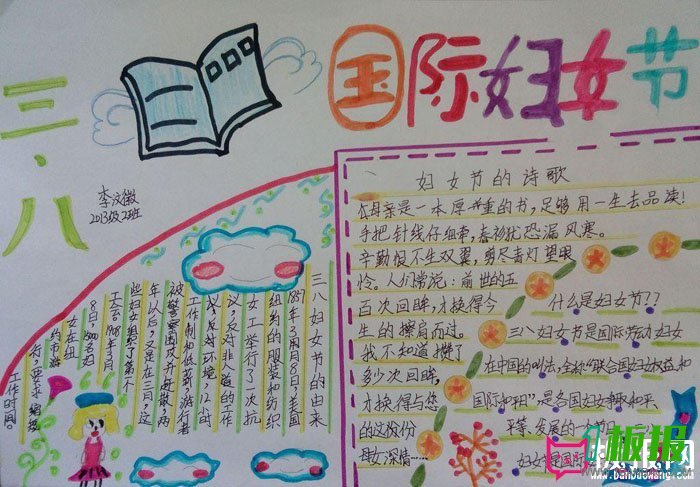 三·八
国际妇女节
李汶徽
2013级2班
三八妇女节的由来
1857年3月8日,美国
纽约的服装和纺织
女工举行了一次抗
议,反对非人道的工作
环境,12小时
工作制和低薪。游行者
被警察围攻并赶散,两
年以后,又是在三月,这
些妇女组织了第一个
工会。1908年3月
8日,1500名妇
女在纽
约市游
行,要求缩短
工作时间。
妇女节的诗歌
《母亲是一本厚重的书,足够用一生去品读!
手把针线仔细束,春衫犹恐漏风寒。
辛勤恨不生双翼,剪尽青灯望眼
人们常说:前世的五
百次回眸,才换得今
生的擦肩而过,
我不知道攒了
多少次回眸,
才换得与您
的这份
母女深情……
什么是妇女节??
三八妇女节是国际劳动妇女
在中国的叫法,全称“联合国妇女权益和
国际和平”,是各国妇女争取和平、
平等、发展的
妇女节是国际
板报网
www.banbaowang.com